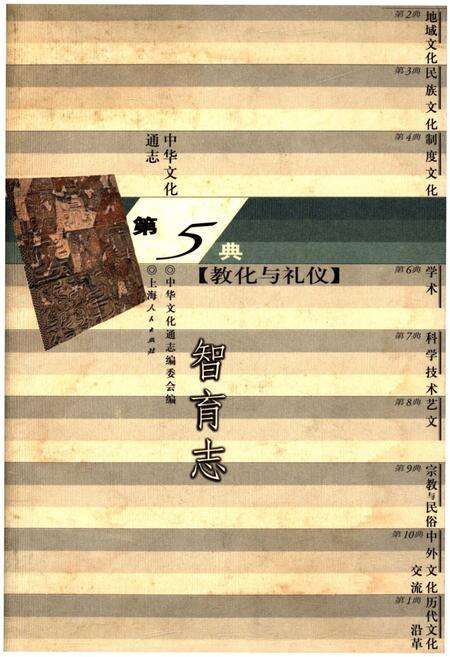 第2典
地域文化
第3典
民族文化
第4典
制度文化
中华文化
通志
第5典
【教化与礼仪】
◎中华文化通志编委会编
◎上海人民出版社
智育志
第6典
学术
第7典
科学技术
第8典
艺文
第9典
宗教与民俗
第10典
中外文化
交流
第1典
历代文化
沿革